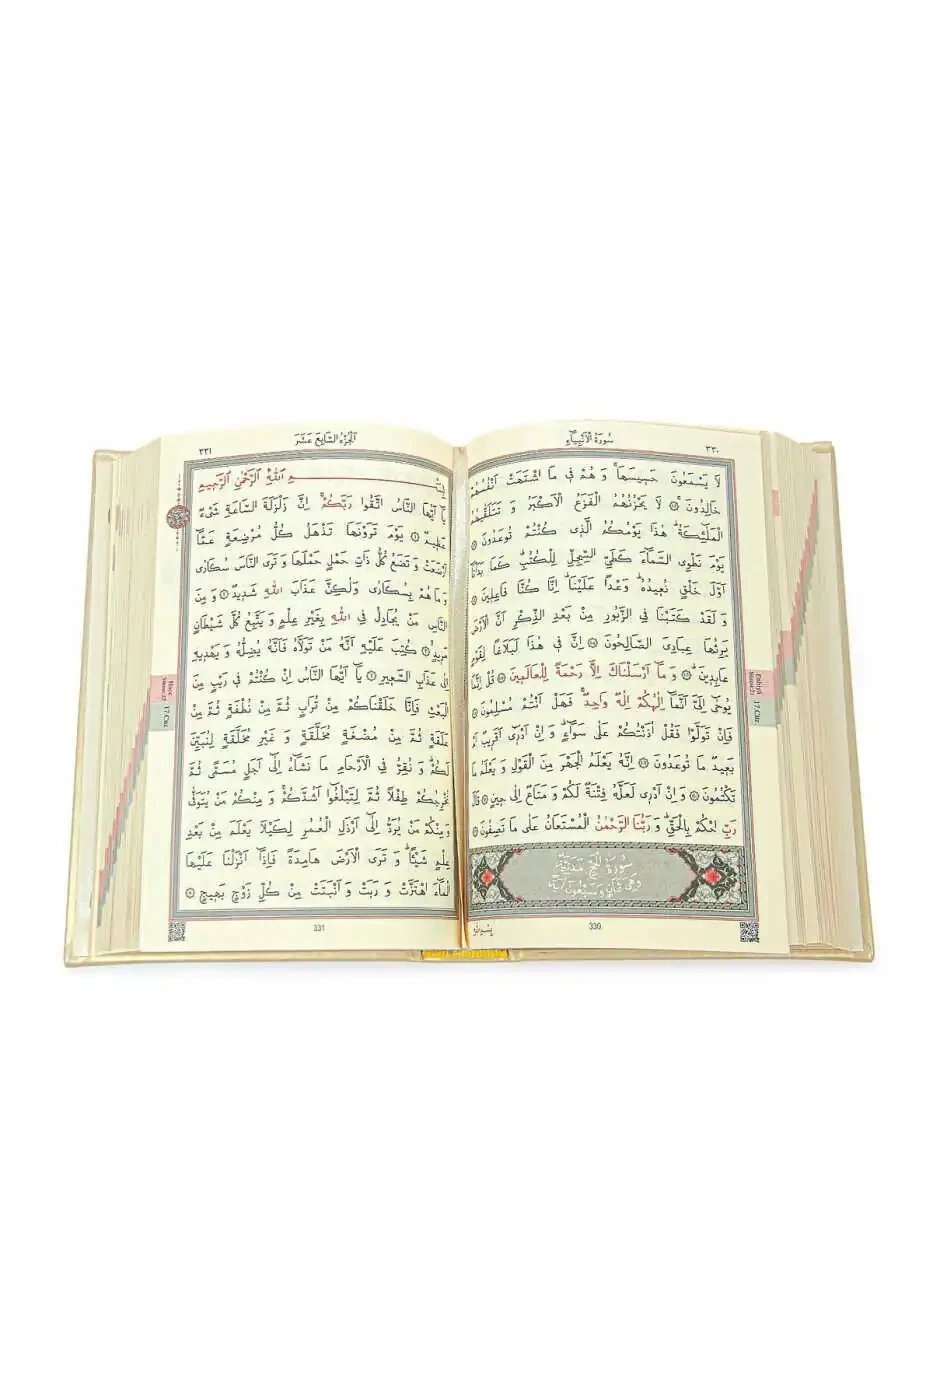 سُورَةُ الْاَنْبِيَاءِ
٣٣٠
لَا يَسْمَعُونَ حَسِيسَهَاۚ وَهُمْ فٖى مَا اشْتَهَتْ اَنْفُسُهُمْ
خَالِدُونَ ۚ لَا يَحْزُنُهُمُ الْفَزَعُ الْاَكْبَرُ وَ تَتَلَقّٰيهُمُ
الْمَلٰٓئِكَةُؕ هٰذَا يَوْمُكُمُ الَّذٖى كُنْتُمْ تُوعَدُونَ
يَوْمَ نَطْوِى السَّمَٓاءَ كَطَىِّ السِّجِلِّ لِلْكُتُبِؕ كَمَا بَدَاْنَٓا
اَوَّلَ خَلْقٍ نُعٖيدُهُؕ وَعْدًا عَلَيْنَاؕ اِنَّا كُنَّا فَاعِلٖينَ
وَ لَقَدْ كَتَبْنَا فِى الزَّبُورِ مِنْ بَعْدِ الذِّكْرِ اَنَّ الْاَرْضَ
يَرِثُهَا عِبَادِىَ الصَّالِحُونَ اِنَّ فٖى هٰذَا لَبَلَاغًا لِقَوْمٍ
عَابِدٖينَؕ وَ مَٓا اَرْسَلْنَاكَ اِلَّا رَحْمَةً لِلْعَالَمٖينَ قُلْ اِنَّمَا
يُوحٰٓى اِلَىَّ اَنَّمَٓا اِلٰهُكُمْ اِلٰهٌ وَاحِدٌۚ فَهَلْ اَنْتُمْ مُسْلِمُونَ
فَاِنْ تَوَلَّوْا فَقُلْ اٰذَنْتُكُمْ عَلٰى سَوَٓاءٍؕ وَ اِنْ اَدْرٖٓى اَقَرٖيبٌ اَمْ
بَعٖيدٌ مَا تُوعَدُونَ اِنَّهُ يَعْلَمُ الْجَهْرَ مِنَ الْقَوْلِ وَ يَعْلَمُ مَا
تَكْتُمُونَ وَ اِنْ اَدْرٖى لَعَلَّهُ فِتْنَةٌ لَكُمْ وَ مَتَاعٌ اِلٰى حٖينٍ قَالَ
رَبِّ احْكُمْ بِالْحَقِّؕ وَ رَبُّنَا الرَّحْمٰنُ الْمُسْتَعَانُ عَلٰى مَا تَصِفُونَ
سُورَةُ الْحَجِّ مَدَنِيَّةٌ
وَهِىَ ثَمَانٍ وَ سَبْعُونَ اٰيَةً
330
Enbiyâ
Sûresi:21
17.Cüz
اَلْجُزْءُ السَّابِعَ عَشَرَ
٣٣١
بِسْمِ اللّٰهِ الرَّحْمٰنِ الرَّحٖيمِ
يَٓا اَيُّهَا النَّاسُ اتَّقُوا رَبَّكُمْۚ اِنَّ زَلْزَلَةَ السَّاعَةِ شَىْءٌ
عَظٖيمٌ يَوْمَ تَرَوْنَهَا تَذْهَلُ كُلُّ مُرْضِعَةٍ عَمَّٓا
اَرْضَعَتْ وَ تَضَعُ كُلُّ ذَاتِ حَمْلٍ حَمْلَهَا وَ تَرَى النَّاسَ سُكَارٰى
وَ مَا هُمْ بِسُكَارٰى وَلٰكِنَّ عَذَابَ اللّٰهِ شَدٖيدٌ وَ مِنَ
النَّاسِ مَنْ يُجَادِلُ فِى اللّٰهِ بِغَيْرِ عِلْمٍ وَ يَتَّبِعُ كُلَّ شَيْطَانٍ
مَرٖيدٍۙ كُتِبَ عَلَيْهِ اَنَّهُ مَنْ تَوَلَّاهُ فَاَنَّهُ يُضِلُّهُ وَ يَهْدٖيهِ
اِلٰى عَذَابِ السَّعٖيرِ يَٓا اَيُّهَا النَّاسُ اِنْ كُنْتُمْ فٖى رَيْبٍ مِنَ
الْبَعْثِ فَاِنَّا خَلَقْنَاكُمْ مِنْ تُرَابٍ ثُمَّ مِنْ نُطْفَةٍ ثُمَّ مِنْ
عَلَقَةٍ ثُمَّ مِنْ مُضْغَةٍ مُخَلَّقَةٍ وَ غَيْرِ مُخَلَّقَةٍ لِنُبَيِّنَ
لَكُمْؕ وَ نُقِرُّ فِى الْاَرْحَامِ مَا نَشَٓاءُ اِلٰٓى اَجَلٍ مُسَمًّى ثُمَّ
نُخْرِجُكُمْ طِفْلًا ثُمَّ لِتَبْلُغُٓوا اَشُدَّكُمْۚ وَ مِنْكُمْ مَنْ يُتَوَفّٰى
وَ مِنْكُمْ مَنْ يُرَدُّ اِلٰٓى اَرْذَلِ الْعُمُرِ لِكَيْلَا يَعْلَمَ مِنْ بَعْدِ
عِلْمٍ شَيْئًاؕ وَ تَرَى الْاَرْضَ هَامِدَةً فَاِذَٓا اَنْزَلْنَا عَلَيْهَا
الْمَٓاءَ اهْتَزَّتْ وَ رَبَتْ وَ اَنْبَتَتْ مِنْ كُلِّ زَوْجٍ بَهٖيجٍ
331
Hacc
Sûresi:22
17.Cüz